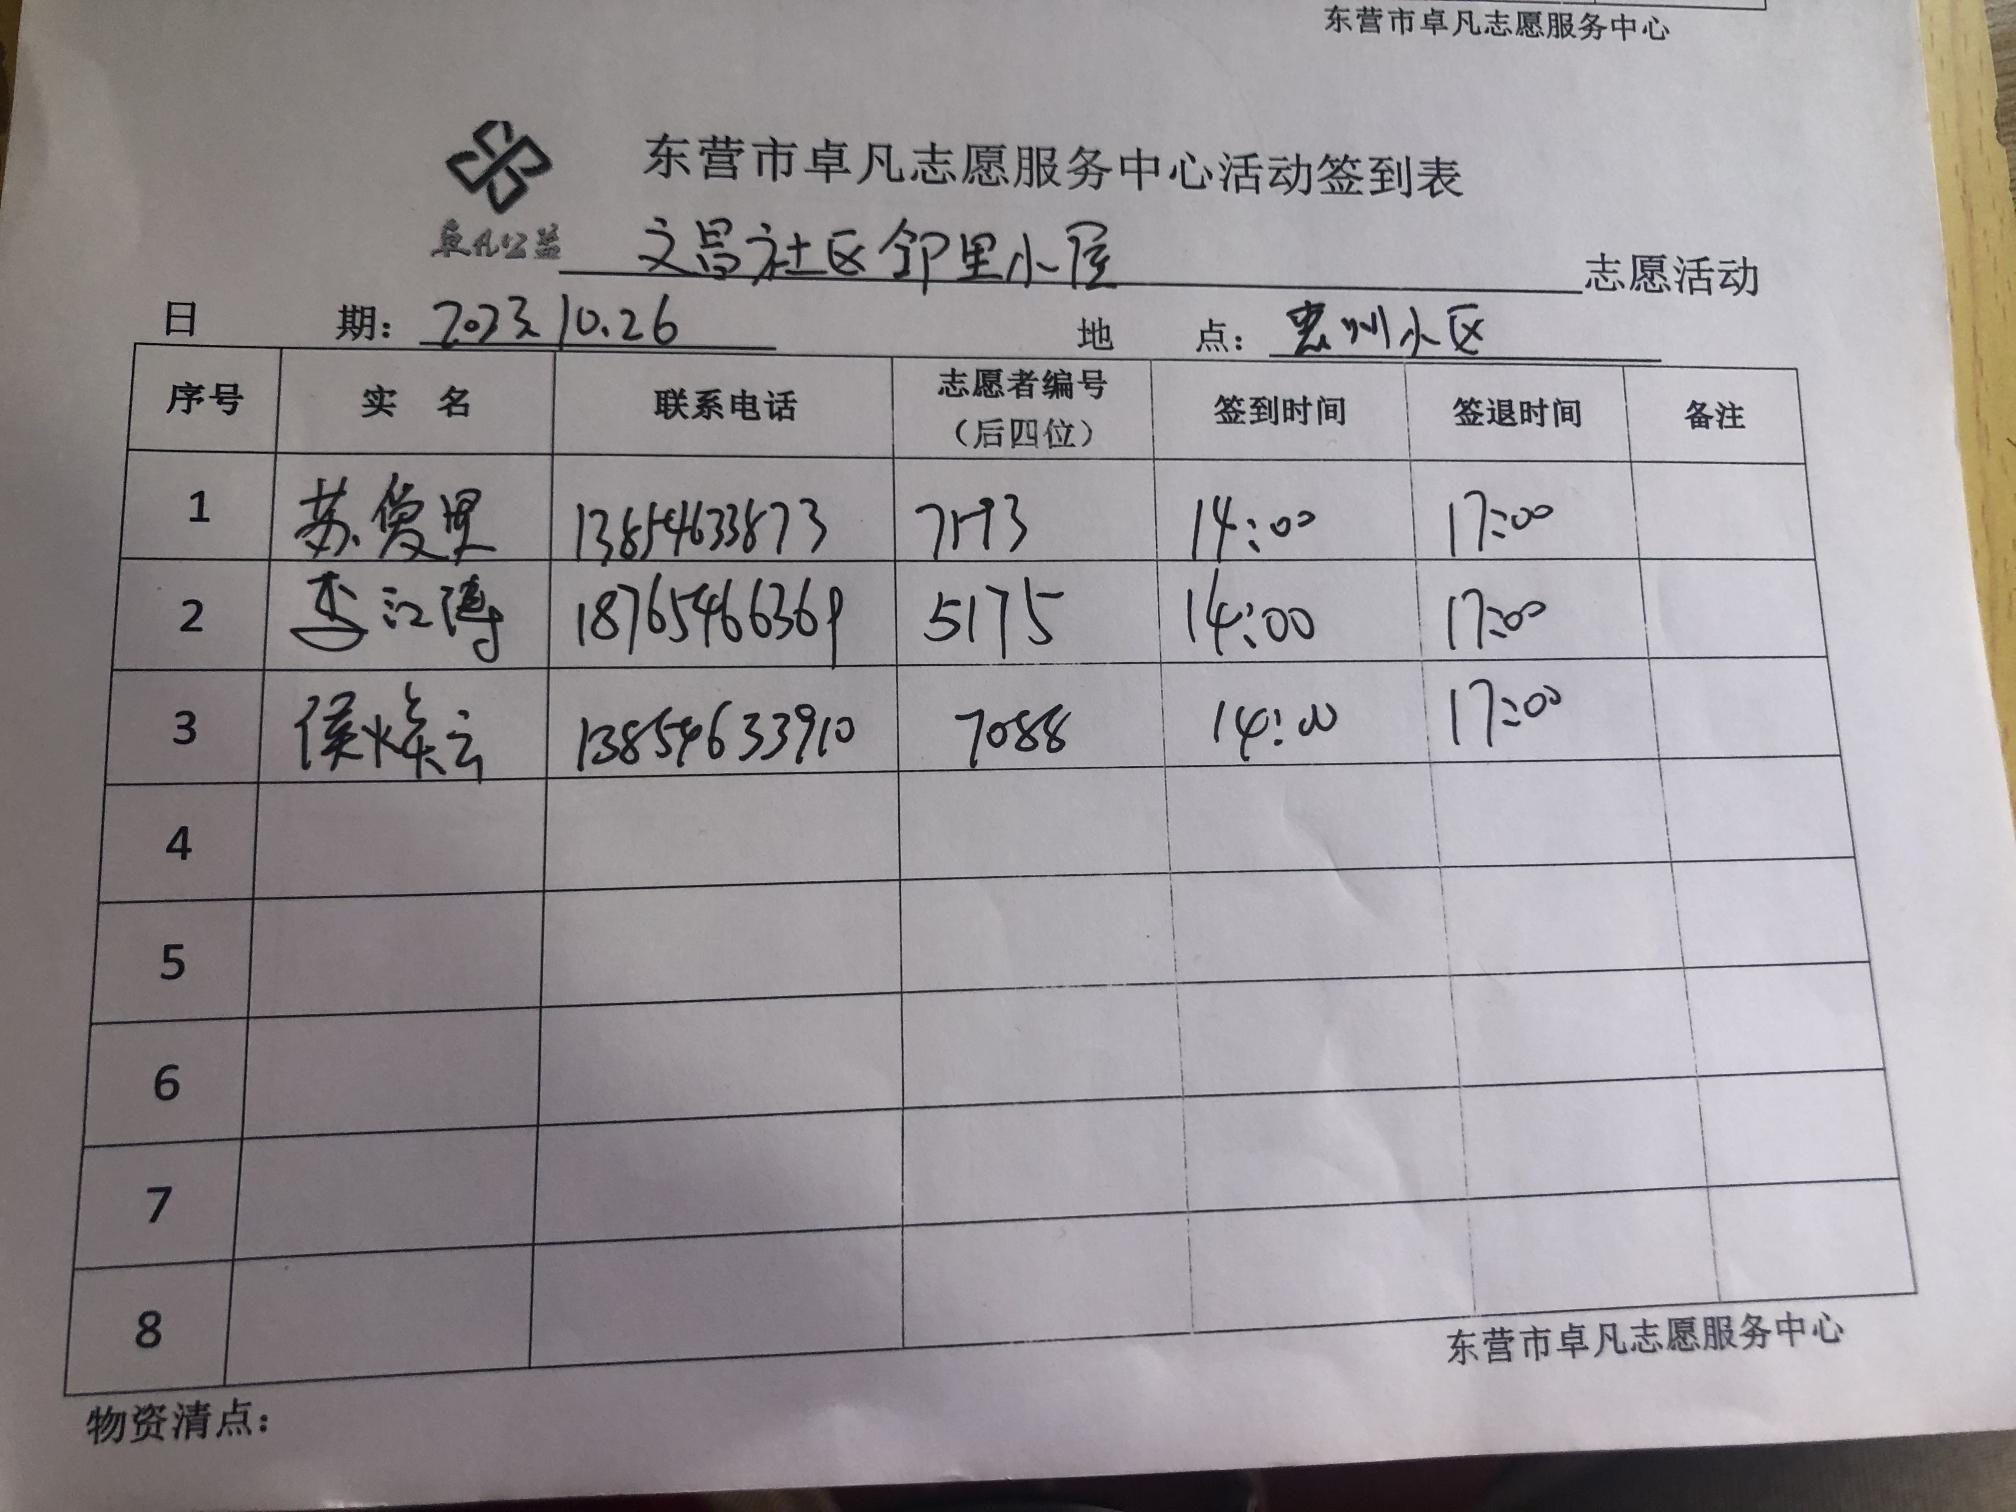 东营市卓凡志愿服务中心
东营市卓凡志愿服务中心活动签到表
卓凡公益 文昌社区邻里小屋 志愿活动
日 期：2023.10.26 地 点：惠州小区
序号 实 名 联系电话 志愿者编号（后四位） 签到时间 签退时间 备注
1 苏俊果 13854633873 7193 14:00 17:00
2 李江涛 18765466369 5175 14:00 17:00
3 侯焕云 13854633910 7088 14:00 17:00
4
5
6
7
8
东营市卓凡志愿服务中心
物资清点：